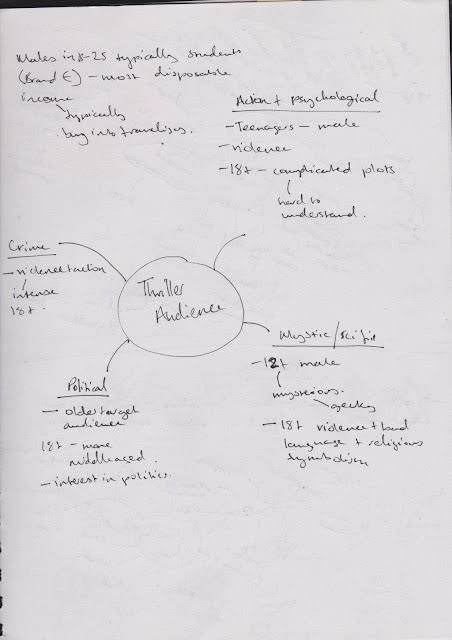 Males in 18-25 typically students
(Band E) - most disposable
income
typically
buy into franchises.
Action + psychological
- Teenagers - male
- violence
- 18+ - complicated plots
hard to
understand.
Crime
- violence + action
intense
18+.
Thriller
Audience
Mystic / scifi
- 12+ male
mysterious.
geeky
- 18+ violence + bad
language + religious
symbolism
Political
- older target
audience
18+ - more
middle aged.
- interest in politics.